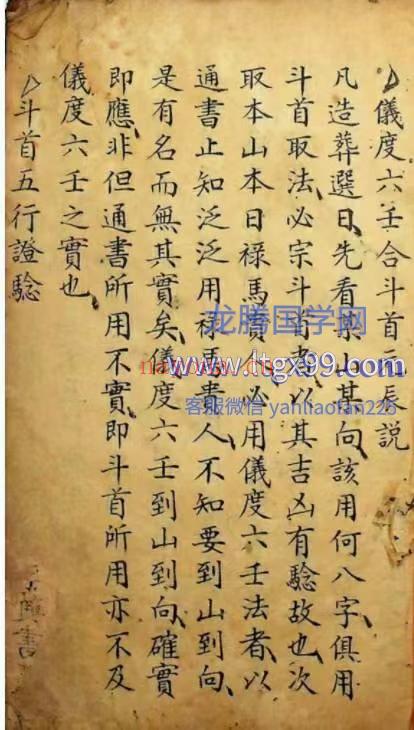 儀度六壬合斗首元辰說
凡造葬選日先看某山某向該用何八字俱用
斗首取法必宗斗首者以其吉凶有騐故也次
取本山本日祿馬貴人必用儀度六壬法者以
通書止知泛泛用祿馬貴人不知要到山到向
是有名而無其實矣儀度六壬到山到向確實
即應非但通書所用不實即斗首所用亦不及
儀度六壬之實也
斗首五行證騐
龙腾国学网
www.ltgx99.com
客服微信 yanliaofan225